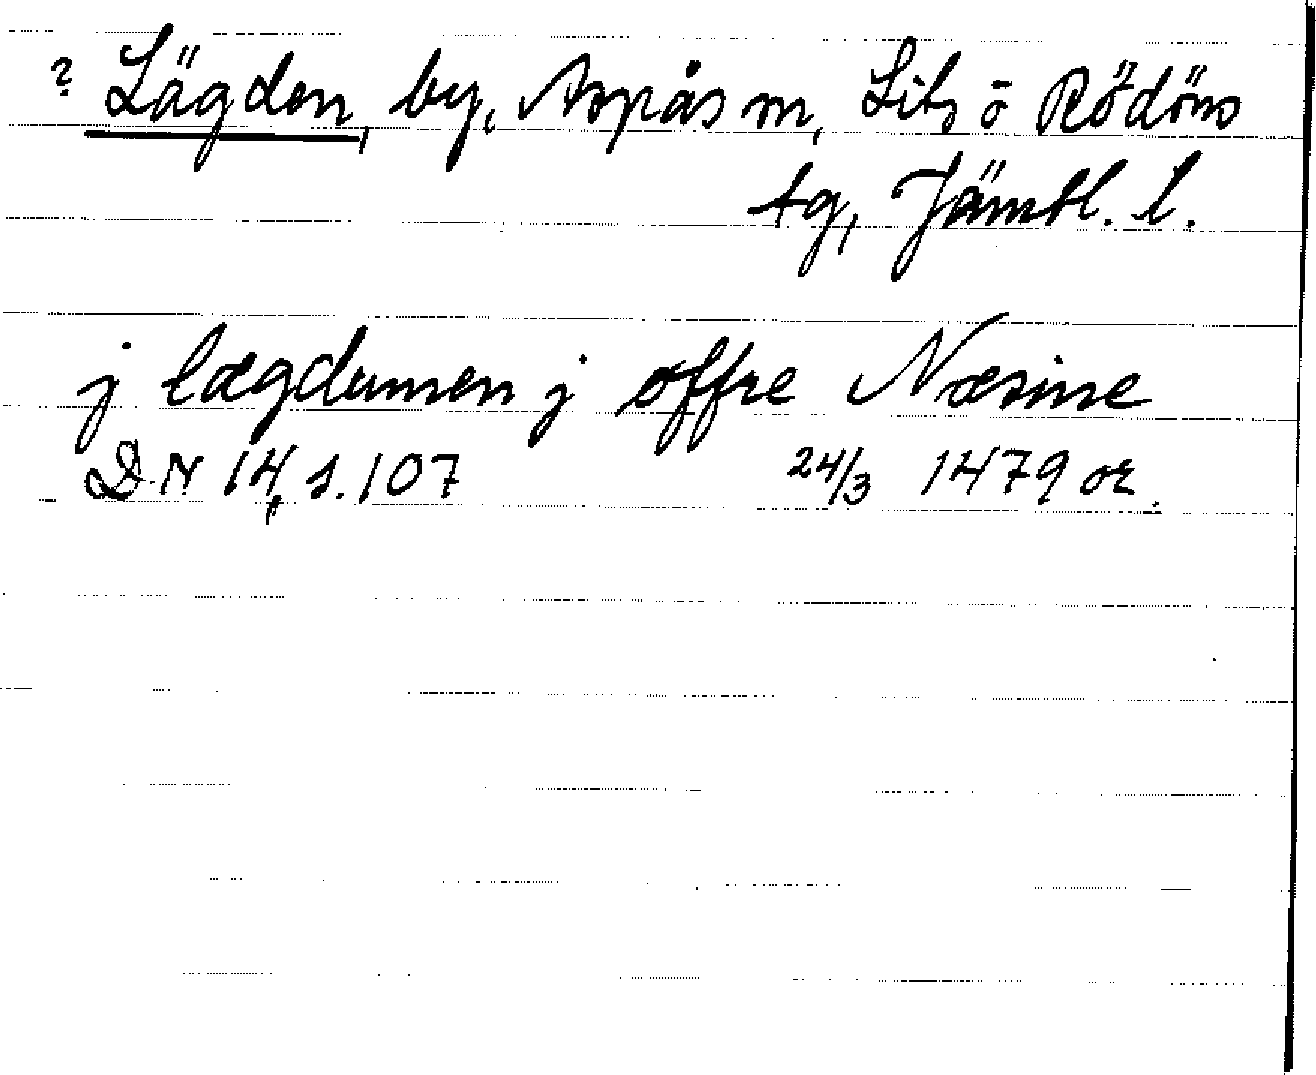 ? Lägden, by, Aspås sn, Lits ö Rödöns
tg, Jämtl. l.
j lægdumen j øffre Næsine
DN 14, s. 107 24/3 1479 or.